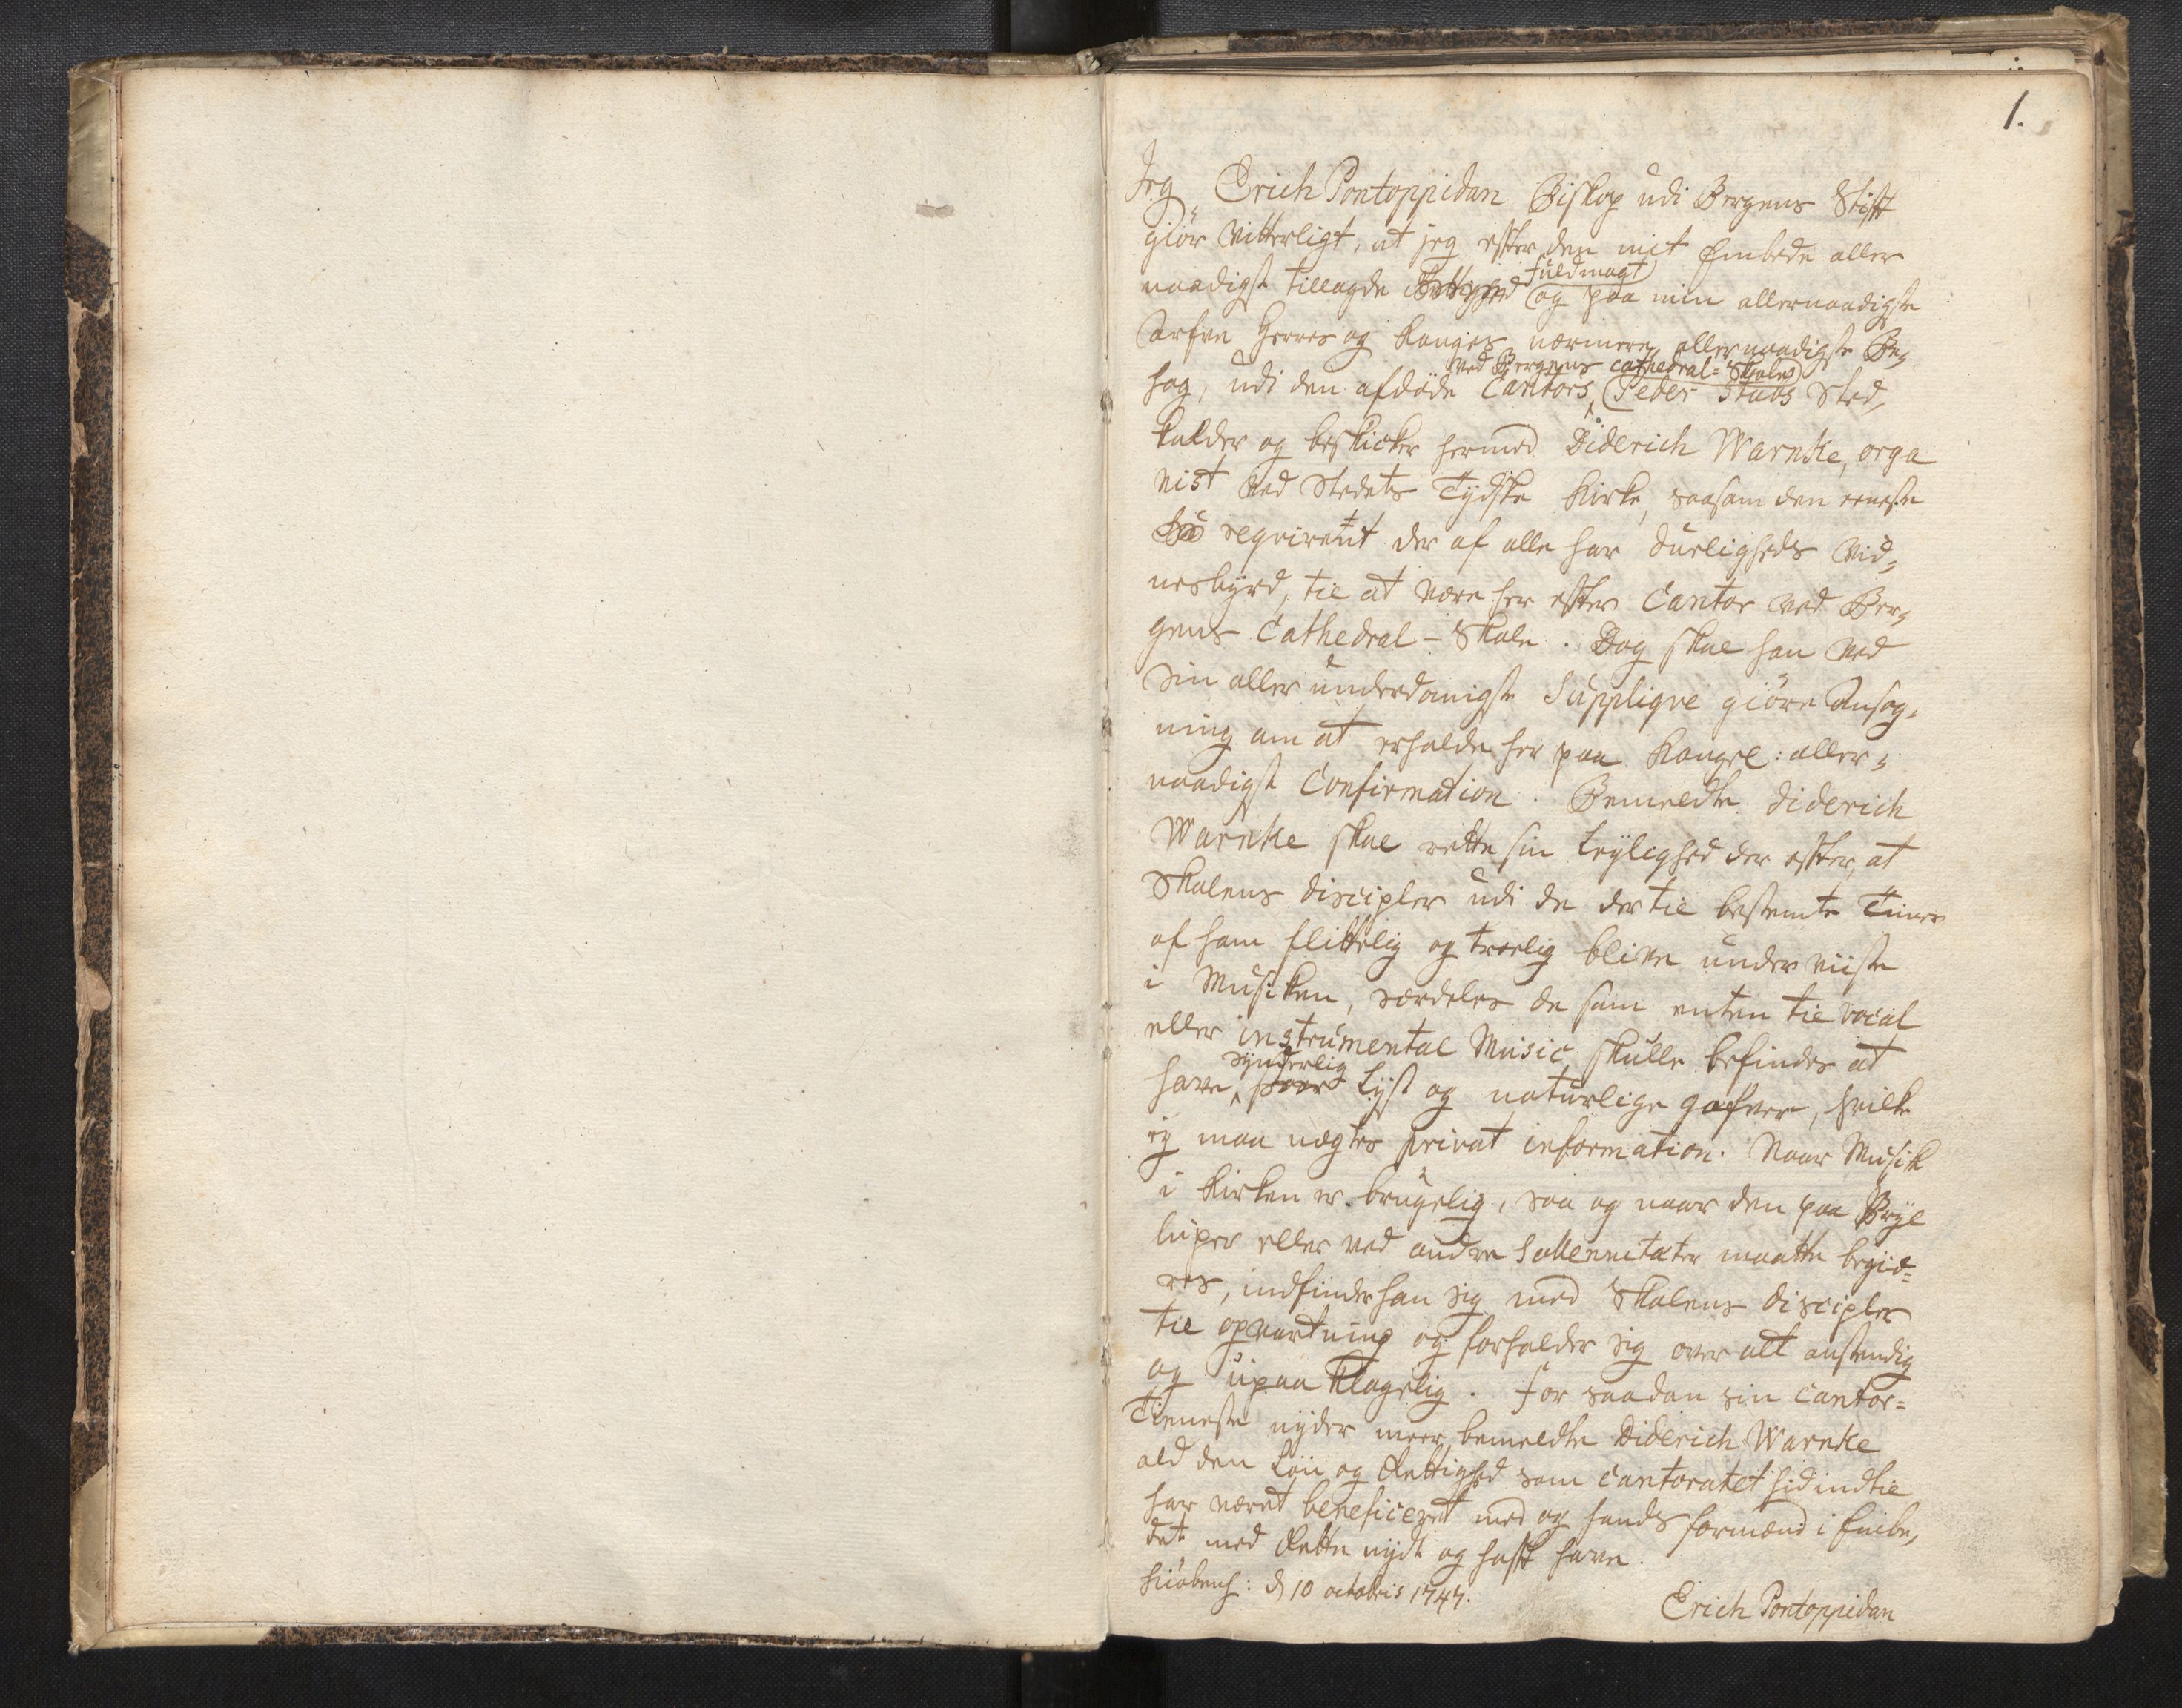 1.
Jeg Erich Pontoppidan Biskop udi Bergens Stift
giör vitterligt, at jeg efter den mit Embede aller
naadigst tillagde fuldmagt og paa min allernaadigste
Arfve Herres og Konges nærmere allernaadigste Be,
hag, udi den afdöde Cantors ved Bergens cathedral=Skole Peder Stubs Sted,
kalder og beskicker hermed Diderich Warnke, orga
nist ved Stedets Tydske Kirke, saasom den eeneste
reqvirent der af alle har dueligheds Vid,
nesbyrd, til at være her efter Cantor ved Ber,
gens Cathedral-Skole. Dog skal han ved
sin aller underdanigste Suppliqve giöre Ansög,
ning om at erholde her paa Kongel: aller,
naadigst Confirmation. Bemeldte Diderich
Warnke skal rette sin Leylighed der efter, at
Skolens Discipler udi de der til bestemte Timer
af ham flittelig og troelig blive under viiste
i Musiken, særdeles de som enten til vocal
eller instrumental Music skulle befindes at
have synderlig Lyst og naturlige gafver, hvilke
ey maa nægtes privat information. Naar Musik
i Kirken er brugelig, saa og naar den paa Bryl
luper eller ved andre Sollennitæter maatte begiæ=
res, indfinder han sig med Skolens Discipler
til opvartning og forholder sig over alt anstendig
og upaa klagelig. For saadan sin Cantor=
Tieneste nyder meer bemeldte Diderich Warnke
ald den Lön og Rettighed som Cantoratet hid indtil
har været beneficeret med og hands formænd i Embe,
det med Rette nydt og haft have.
Kiöbenh: d 10 octobris 1747.
Erich Pontoppidan